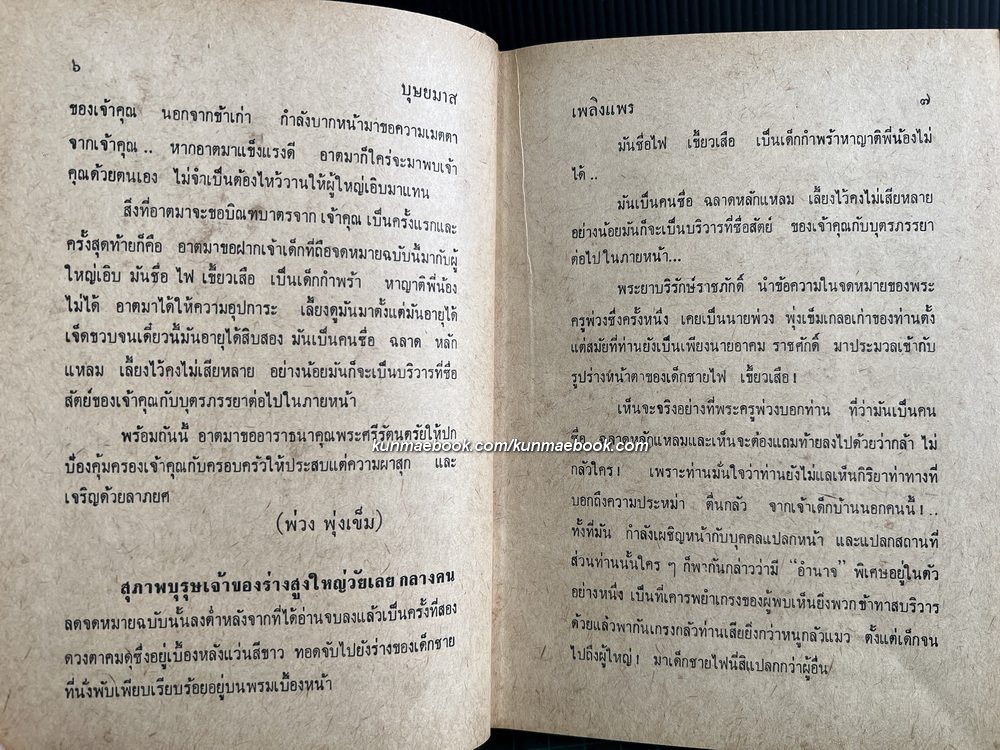 ๖
บุษยมาส
ของเจ้าคุณ นอกจากข้าเก่า กำลังบากหน้ามาขอความเมตตา
จากเจ้าคุณ .. หากอาตมาแข็งแรงดี อาตมาก็ใคร่จะมาพบเจ้า
คุณด้วยตนเอง ไม่จำเป็นต้องไหว้วานให้ผู้ใหญ่เอิบมาแทน
สิ่งที่อาตมาจะขอบิณฑบาตรจาก เจ้าคุณ เป็นครั้งแรกและ
ครั้งสุดท้ายก็คือ อาตมาขอฝากเจ้าเด็กที่ถือจดหมายฉบับนี้มากับผู้
ใหญ่เอิบ มันชื่อ ไฟ เขี้ยวเสือ เป็นเด็กกำพร้า หาญาติพี่น้อง
ไม่ได้ อาตมาได้ให้ความอุปการะ เลี้ยงดูมันมาตั้งแต่มันอายุได้
เจ็ดขวบจนเดี๋ยวนี้มันอายุได้สิบสอง มันเป็นคนซื่อ ฉลาด หลัก
แหลม เลี้ยงไว้คงไม่เสียหลาย อย่างน้อยมันก็จะเป็นบริวารที่ซื่อ
สัตย์ของเจ้าคุณกับบุตรภรรยาต่อไปในภายหน้า
พร้อมกันนี้ อาตมาขออาราธนาคุณพระศรีรัตนตรัยให้ปก
ป้องคุ้มครองเจ้าคุณกับครอบครัวให้ประสบแต่ความผาสุก และ
เจริญด้วยลาภยศ
(พ่วง พุ่งเข็ม)
สุภาพบุรุษเจ้าของร่างสูงใหญ่วัยเลย กลางคน
ลดจดหมายฉบับนั้นลงต่ำหลังจากที่ได้อ่านจบลงแล้วเป็นครั้งที่สอง
ดวงตาคมดุซึ่งอยู่เบื้องหลังแว่นสีขาว ทอดจับไปยังร่างของเด็กชาย
ที่นั่งพับเพียบเรียบร้อยอยู่บนพรมเบื้องหน้า
เพลิงแพร
๗
มันชื่อไฟ เขี้ยวเสือ เป็นเด็กกำพร้าหาญาติพี่น้องไม่
ได้ ..
มันเป็นคนซื่อ ฉลาดหลักแหลม เลี้ยงไว้คงไม่เสียหลาย
อย่างน้อยมันก็จะเป็นบริวารที่ซื่อสัตย์ ของเจ้าคุณกับบุตรภรรยา
ต่อไปในภายหน้า...
พระยาบริรักษ์ราชภักดิ์ นำข้อความในจดหมายของพระ
ครูพ่วงซึ่งครั้งหนึ่ง เคยเป็นนายพ่วง พุ่งเข็มเกลอเก่าของท่านตั้ง
แต่สมัยที่ท่านยังเป็นเพียงนายอาคม ราชศักดิ์ มาประมวลเข้ากับ
รูปร่างหน้าตาของเด็กชายไฟ เขี้ยวเสือ !
เห็นจะจริงอย่างที่พระครูพ่วงบอกท่าน ที่ว่ามันเป็นคน
ซื่อ ฉลาดหลักแหลมและเห็นจะต้องแถมท้ายลงไปด้วยว่ากล้า ไม่
กลัวใคร ! เพราะท่านมั่นใจว่าท่านยังไม่แลเห็นกิริยาท่าทางที่
บอกถึงความประหม่า ตื่นกลัว จากเจ้าเด็กบ้านนอกคนนี้ ! ..
ทั้งที่มัน กำลังเผชิญหน้ากับบุคคลแปลกหน้า และแปลกสถานที่
ส่วนท่านนั้นใคร ๆ ก็พากันกล่าวว่ามี “อำนาจ” พิเศษอยู่ในตัว
อย่างหนึ่ง เป็นที่เคารพยำเกรงของผู้พบเห็นยิ่งพวกข้าทาสบริวาร
ด้วยแล้วพากันเกรงกลัวท่านเสียยิ่งกว่าหนูกลัวแมว ตั้งแต่เด็กจน
ไปถึงผู้ใหญ่ ! มาเด็กชายไฟนี่สิแปลกกว่าผู้อื่น
kunmaebook.com/kunmaebook.com